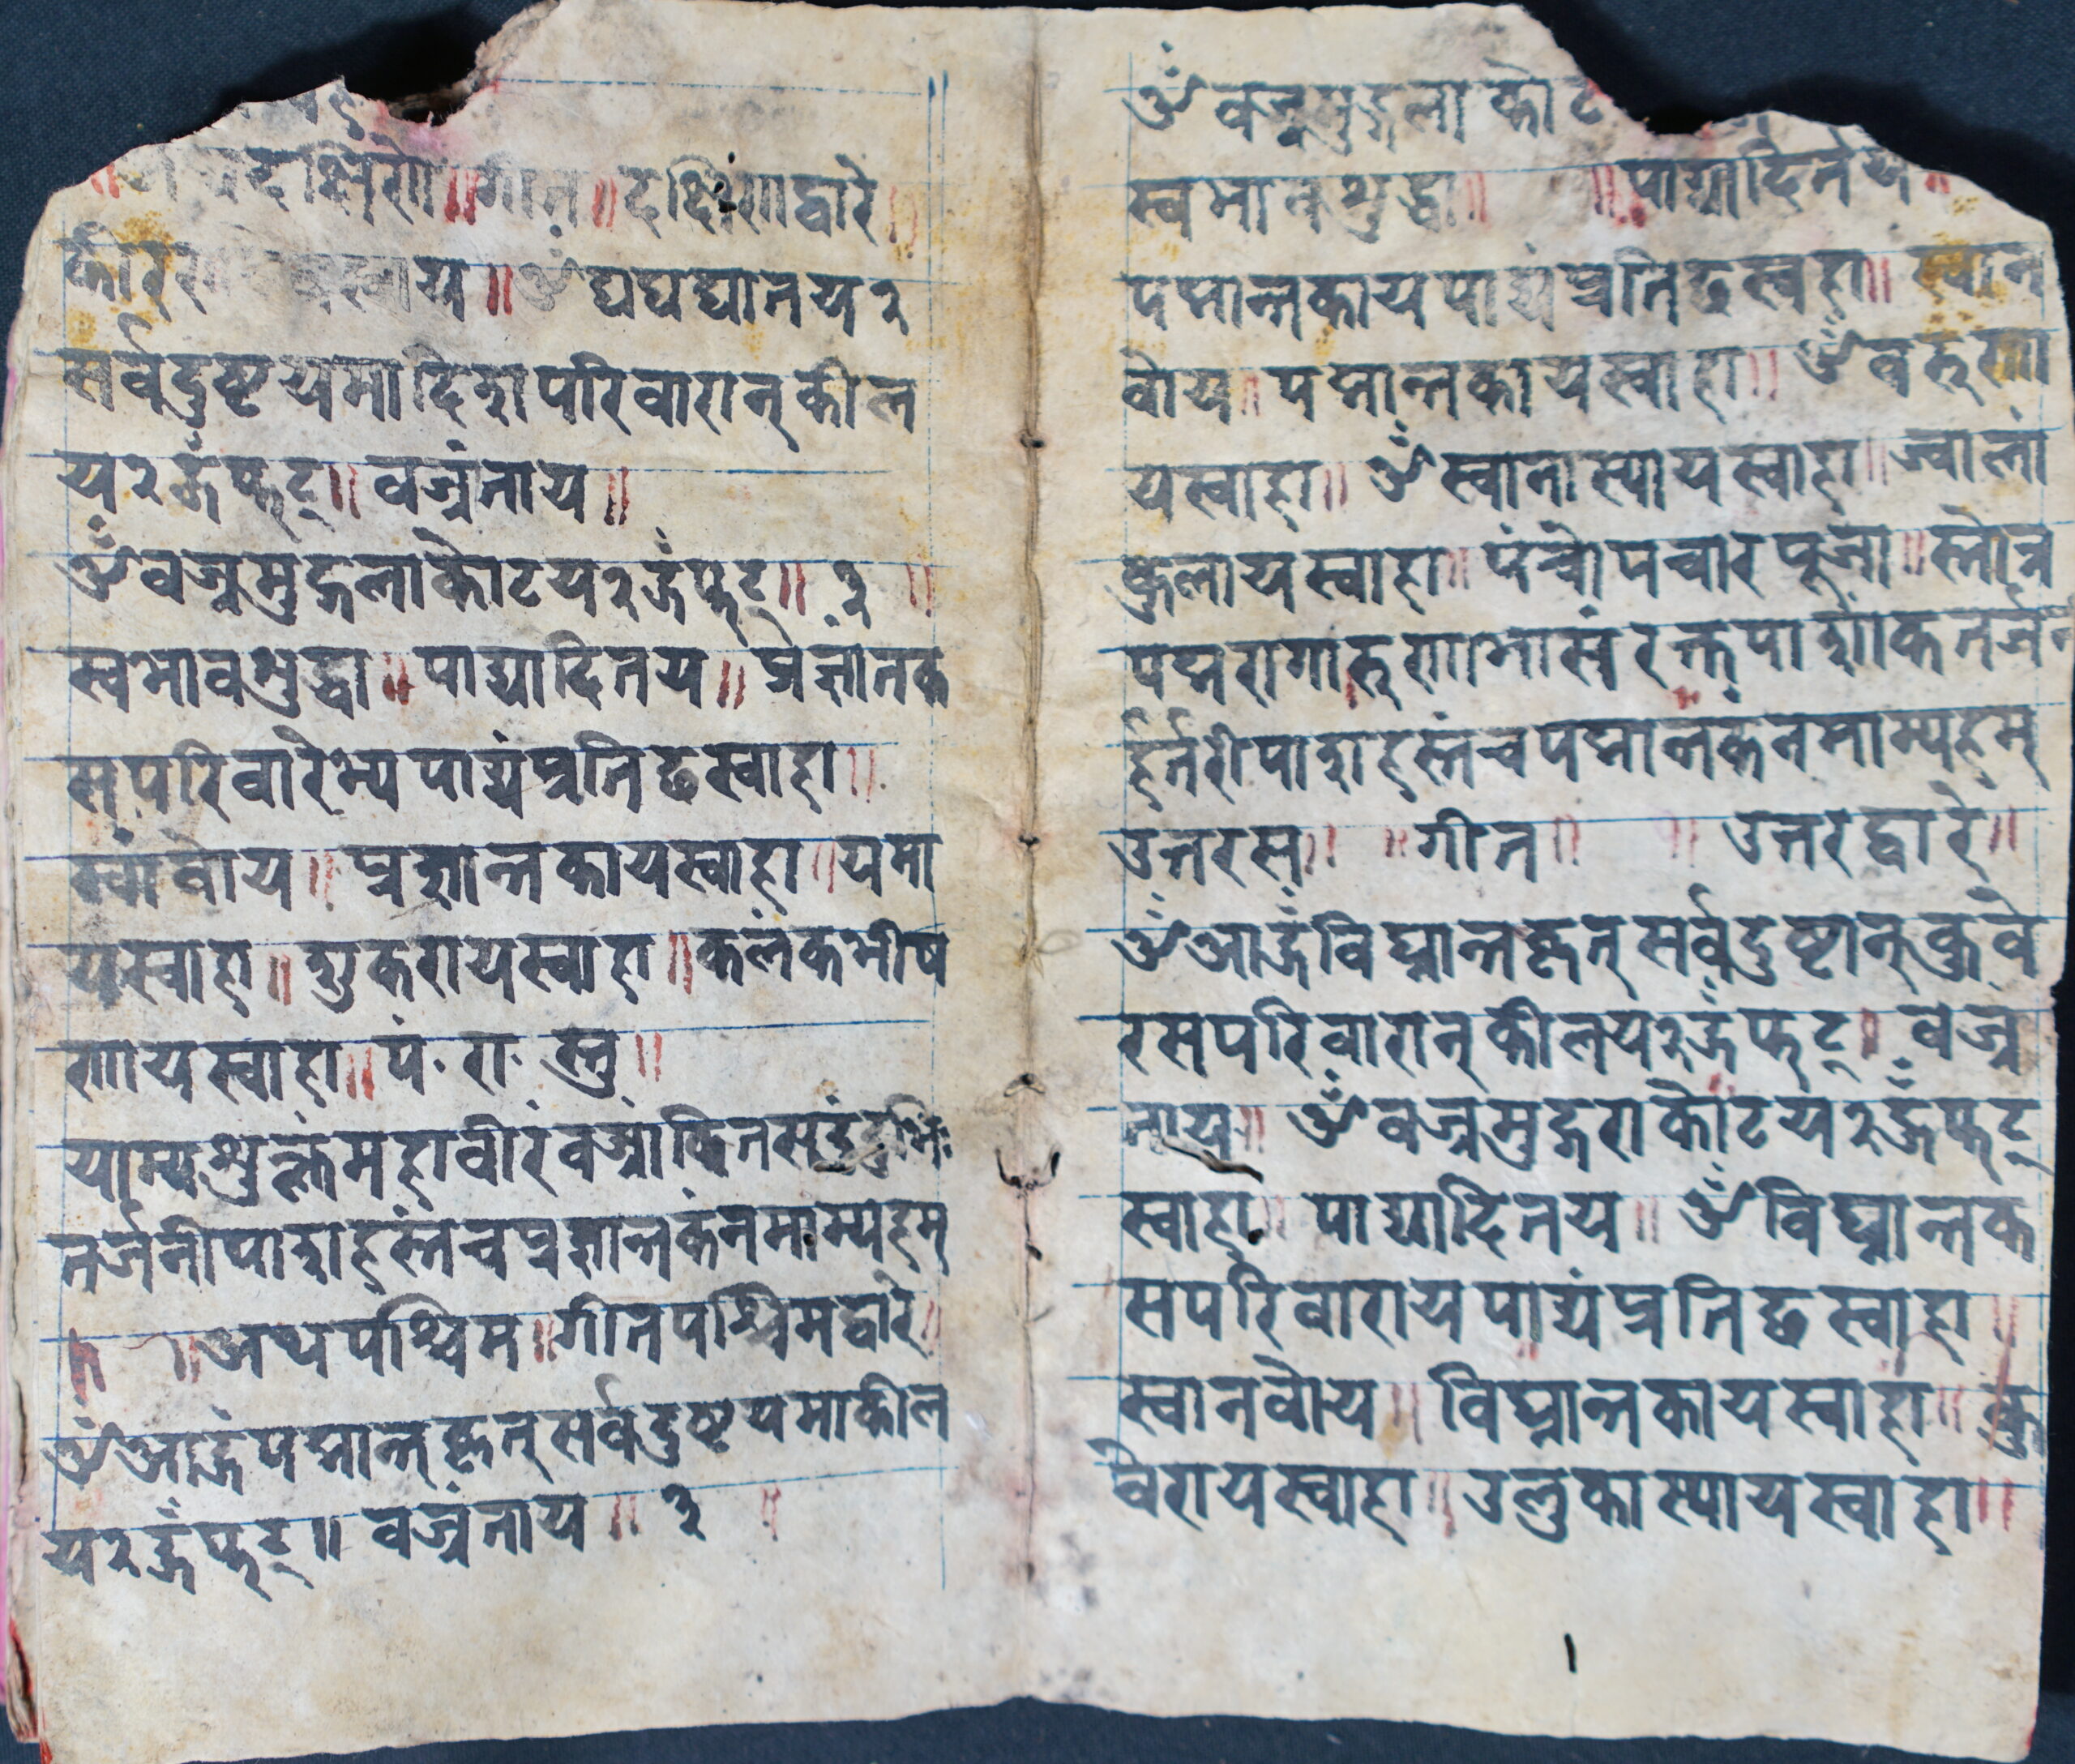 दक्षिणे॥ गीत॥ दक्षिणद्वारे॥
य॥ ॐ घघघातय२
सर्वदुष्टयमादिशापरिवारान्कील
य२हूंफट्॥ वज्रंनाय॥
ॐवज्रमुद्गलाकोटय२हूंफट्॥ ३॥
स्वभावशुद्धा॥ पाद्यादितय॥
सपरिवारेभ्यपाद्यंप्रतिछस्वाहा॥
स्वांवोय॥ प्रज्ञान्तकायस्वाहा॥ यमा
यस्वाहा॥ शुकरायस्वाहा॥ कलंकभीष
णायस्वाहा॥ पं॰ रा॰ स्तु॥
याम्यशुक्लंमहावीरं
तर्जनीपाशहस्तंचप्रज्ञान्तकंनमाम्यहम्
॥ ॥ अथपश्चिम॥ गीतपश्चिमद्वारे॥
ॐआहूंपद्मान्तकृत्सर्वदुष्टयमाकील
य२हूंफट्॥ वज्रंनाय॥ ३॥
ॐवज्रमुद्गलाकोट
स्वभावशुद्धा॥ ॥पाद्यादितय॥
पद्मान्तकायपाद्यंप्रतिछस्वहा॥ स्वान
वोय॥ पद्मान्तकायस्वाहा॥ ॐवरुणा
यस्वाहा॥ ॐस्वानास्यायस्वाहा॥ ज्वाला
कुलायस्वाहा॥ पंचोपचारपूजा॥ स्तोत्र
पद्मरागारुणाभासं
पाशहस्तंचपद्मान्तकंनमाम्यहम्
उत्तरस॥ ॥गीत॥ ॥उत्तरद्वारे॥
ॐआहूंविघ्नान्तकृत्सर्वदुष्टान्कुवे
रसपरिवारान्कीलय२हूंफट्॥ वज्रं
नाय॥ ॐवज्रमुद्गराकोटय२हूंफट्
स्वाहा॥ पाद्यादितय॥ ॐविघ्नान्तक
सपरिवारायपाद्यंप्रतिछस्वाहा॥
स्वानवोय॥ विघ्नान्तकायस्वाहा॥ कु
वेरायस्वाहा॥ उलुकास्यायस्वाहा॥